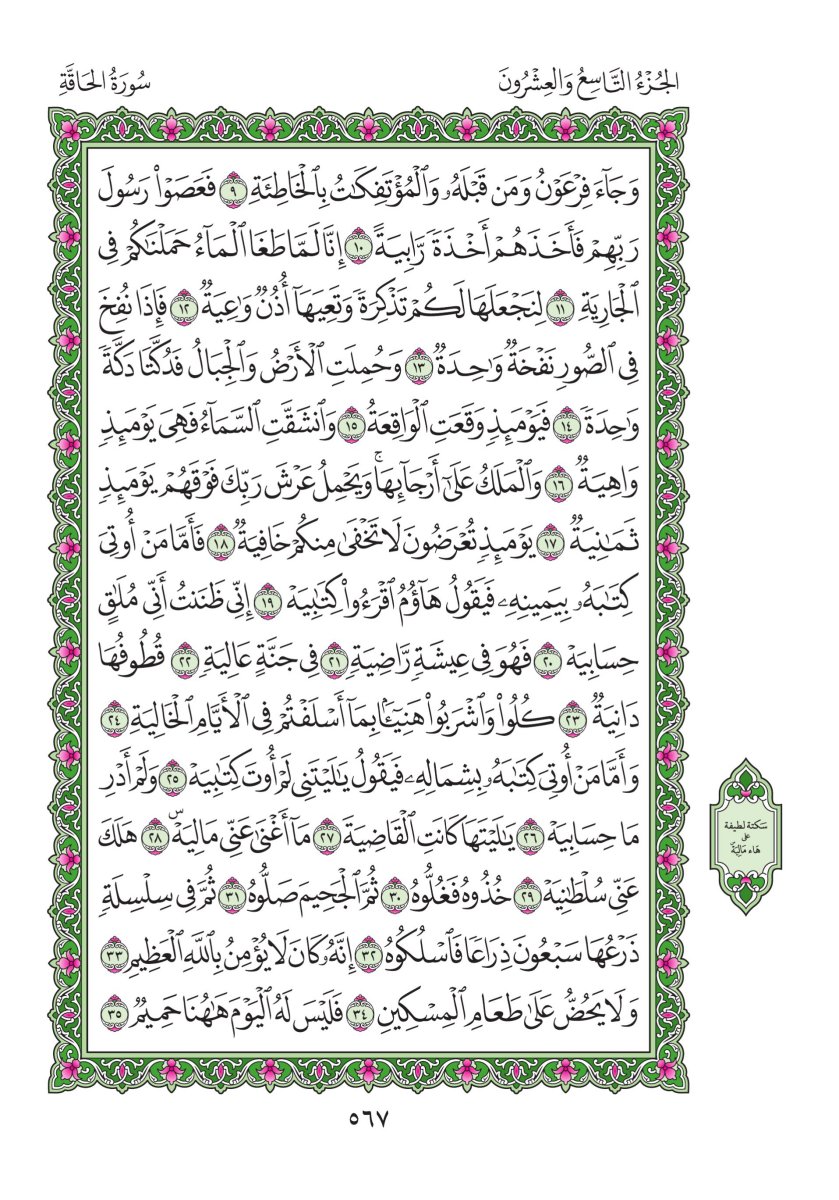 الجُزْءُ التَّاسِعُ وَالعِشْرُونَ
سُورَةُ الحَاقَّةِ
وَجَآءَ فِرْعَوْنُ وَمَن قَبْلَهُۥ وَٱلْمُؤْتَفِكَٰتُ بِٱلْخَاطِئَةِ ٩ فَعَصَوْا۟ رَسُولَ
رَبِّهِمْ فَأَخَذَهُمْ أَخْذَةً رَّابِيَةً ١٠ إِنَّا لَمَّا طَغَا ٱلْمَآءُ حَمَلْنَٰكُمْ فِى
ٱلْجَارِيَةِ ١١ لِنَجْعَلَهَا لَكُمْ تَذْكِرَةً وَتَعِيَهَآ أُذُنٌ وَٰعِيَةٌ ١٢ فَإِذَا نُفِخَ
فِى ٱلصُّورِ نَفْخَةٌ وَٰحِدَةٌ ١٣ وَحُمِلَتِ ٱلْأَرْضُ وَٱلْجِبَالُ فَدُكَّتَا دَكَّةً
وَٰحِدَةً ١٤ فَيَوْمَئِذٍ وَقَعَتِ ٱلْوَاقِعَةُ ١٥ وَٱنشَقَّتِ ٱلسَّمَآءُ فَهِىَ يَوْمَئِذٍ
وَاهِيَةٌ ١٦ وَٱلْمَلَكُ عَلَىٰٓ أَرْجَآئِهَا ۚ وَيَحْمِلُ عَرْشَ رَبِّكَ فَوْقَهُمْ يَوْمَئِذٍ
ثَمَٰنِيَةٌ ١٧ يَوْمَئِذٍ تُعْرَضُونَ لَا تَخْفَىٰ مِنكُمْ خَافِيَةٌ ١٨ فَأَمَّا مَنْ أُوتِىَ
كِتَٰبَهُۥ بِيَمِينِهِۦ فَيَقُولُ هَآؤُمُ ٱقْرَءُوا۟ كِتَٰبِيَهْ ١٩ إِنِّى ظَنَنتُ أَنِّى مُلَٰقٍ
حِسَابِيَهْ ٢٠ فَهُوَ فِى عِيشَةٍ رَّاضِيَةٍ ٢١ فِى جَنَّةٍ عَالِيَةٍ ٢٢ قُطُوفُهَا
دَانِيَةٌ ٢٣ كُلُوا۟ وَٱشْرَبُوا۟ هَنِيٓـًٔۢا بِمَآ أَسْلَفْتُمْ فِى ٱلْأَيَّامِ ٱلْخَالِيَةِ ٢٤
وَأَمَّا مَنْ أُوتِىَ كِتَٰبَهُۥ بِشِمَالِهِۦ فَيَقُولُ يَٰلَيْتَنِى لَمْ أُوتَ كِتَٰبِيَهْ ٢٥ وَلَمْ أَدْرِ
مَا حِسَابِيَهْ ٢٦ يَٰلَيْتَهَا كَانَتِ ٱلْقَاضِيَةَ ٢٧ مَآ أَغْنَىٰ عَنِّى مَالِيَهْ ۜ ٢٨ هَلَكَ
عَنِّى سُلْطَٰنِيَهْ ٢٩ خُذُوهُ فَغُلُّوهُ ٣٠ ثُمَّ ٱلْجَحِيمَ صَلُّوهُ ٣١ ثُمَّ فِى سِلْسِلَةٍ
ذَرْعُهَا سَبْعُونَ ذِرَاعًا فَٱسْلُكُوهُ ٣٢ إِنَّهُۥ كَانَ لَا يُؤْمِنُ بِٱللَّهِ ٱلْعَظِيمِ ٣٣
وَلَا يَحُضُّ عَلَىٰ طَعَامِ ٱلْمِسْكِينِ ٣٤ فَلَيْسَ لَهُ ٱلْيَوْمَ هَٰهُنَا حَمِيمٌ ٣٥
سَكتة لطيفة
على
هَاء مَالِيَهْۜ
٥٦٧